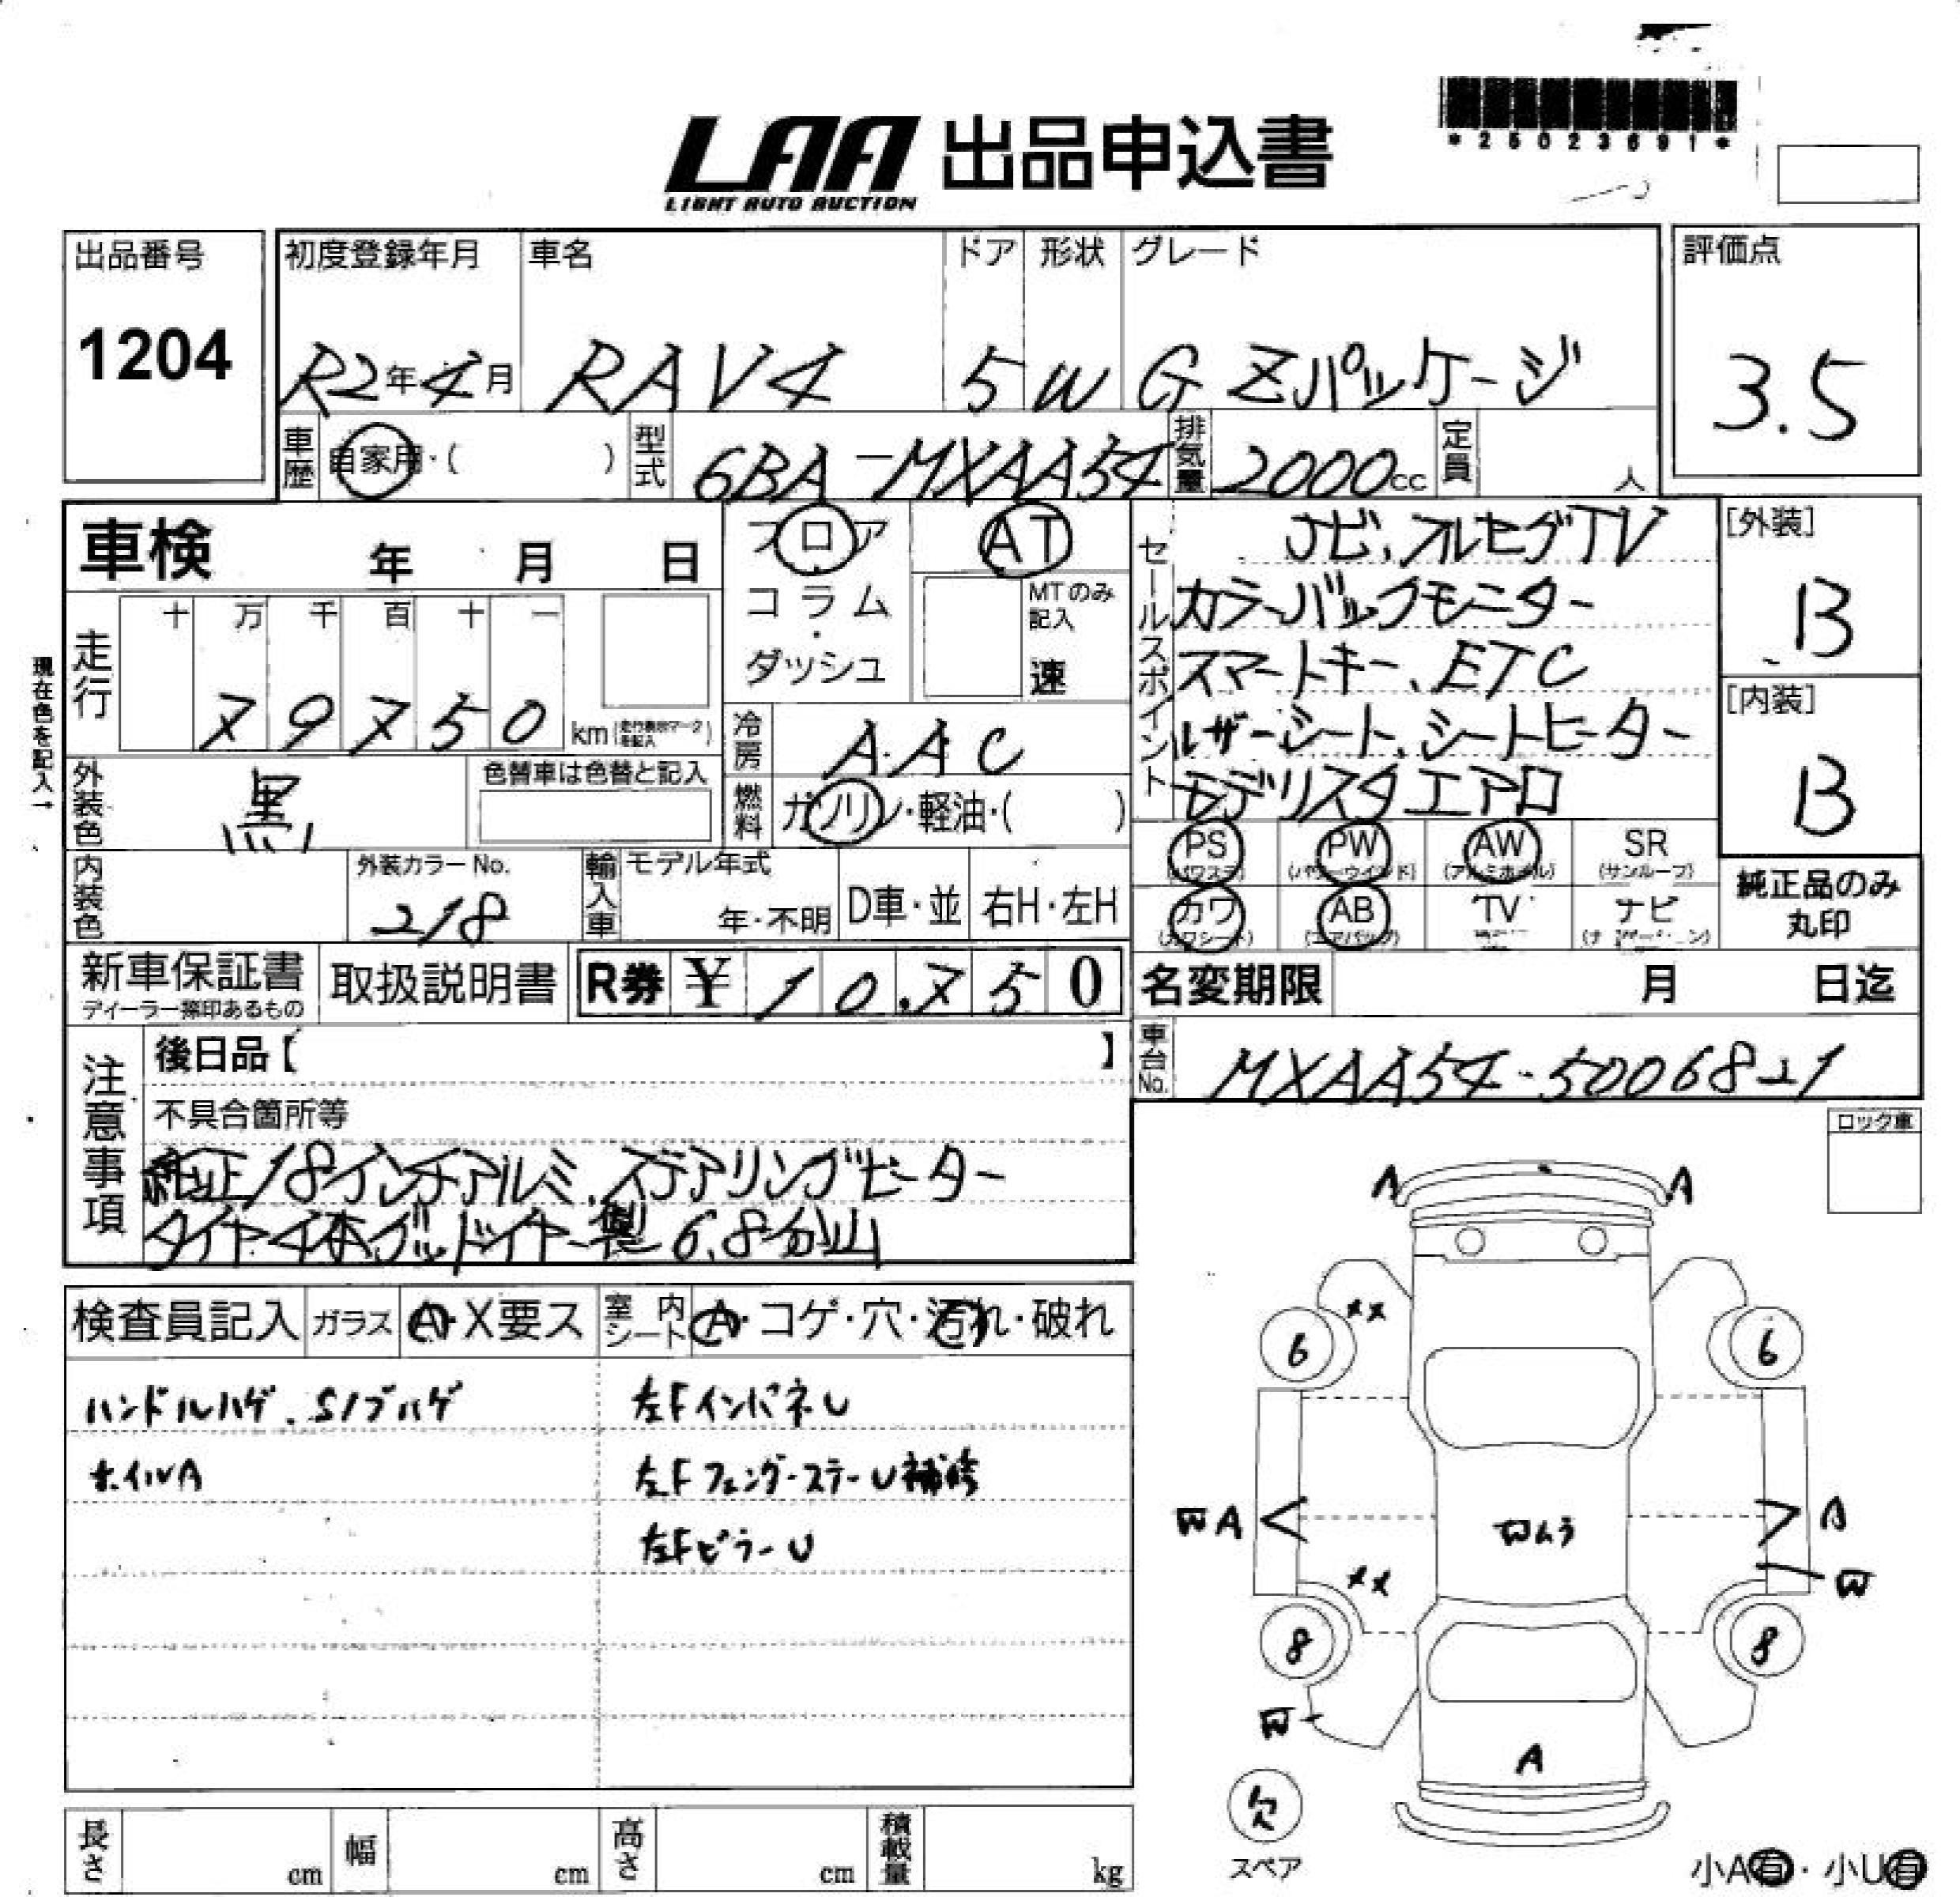 *25023691*
LAA 出品申込書
LIGHT AUTO AUCTION
出品番号
1204
初度登録年月 車名 ドア 形状 グレード
R2年4月 RAV4 5 W G Zパッケージ
評価点
3.5
車歴 自家用・( ) 型式 6BA-MXAA54 排気量 2000cc 定員 人
車検 年 月 日
フロア
コラム
・
ダッシュ
AT
MTのみ
記入
速
現在色を記入→
走行 十 万 千 百 十 一
7 9 7 5 0 km (走行表示マークを記入)
冷房 AAC
燃料 ガソリン・軽油・( )
外装色 黒 色替車は色替と記入
内装色 外装カラーNo.
218
輸入車 モデル年式
年・不明 D車・並 右H・左H
セールスポイント
ナビ、フルセグTV
カラーバックモニター
スマートキー、ETC
レザーシート、シートヒーター
モデリスタエアロ
[外装]
B
[内装]
B
PS (パワステ) PW (パワーウインド) AW (アルミホイル) SR (サンルーフ)
カワ (カワシート) AB (エアバッグ) TV ナビ
純正品のみ
丸印
新車保証書
ディーラー捺印あるもの
取扱説明書 R券 ¥ 10.750
名変期限 月 日迄
車台No. MXAA54-5006821
注意事項
後日品【 】
不具合箇所等
純正18インチアルミ、ステアリングヒーター
タイヤ4本グッドイヤー製 6.8分山
ロック車
検査員記入 ガラス A・X要ス 室内シート A・コゲ・穴・汚れ・破れ
ハンドルハゲ、Sノブハゲ 左FインパネU
ホイルA 左FフェンダーステーU補修
左FピラーU
A A
XX
6 6
WA A
Wムラ
XX W
8 8
W
A
欠
スペア
小A有・小U有
長さ cm 幅 cm 高さ cm 積載量 kg